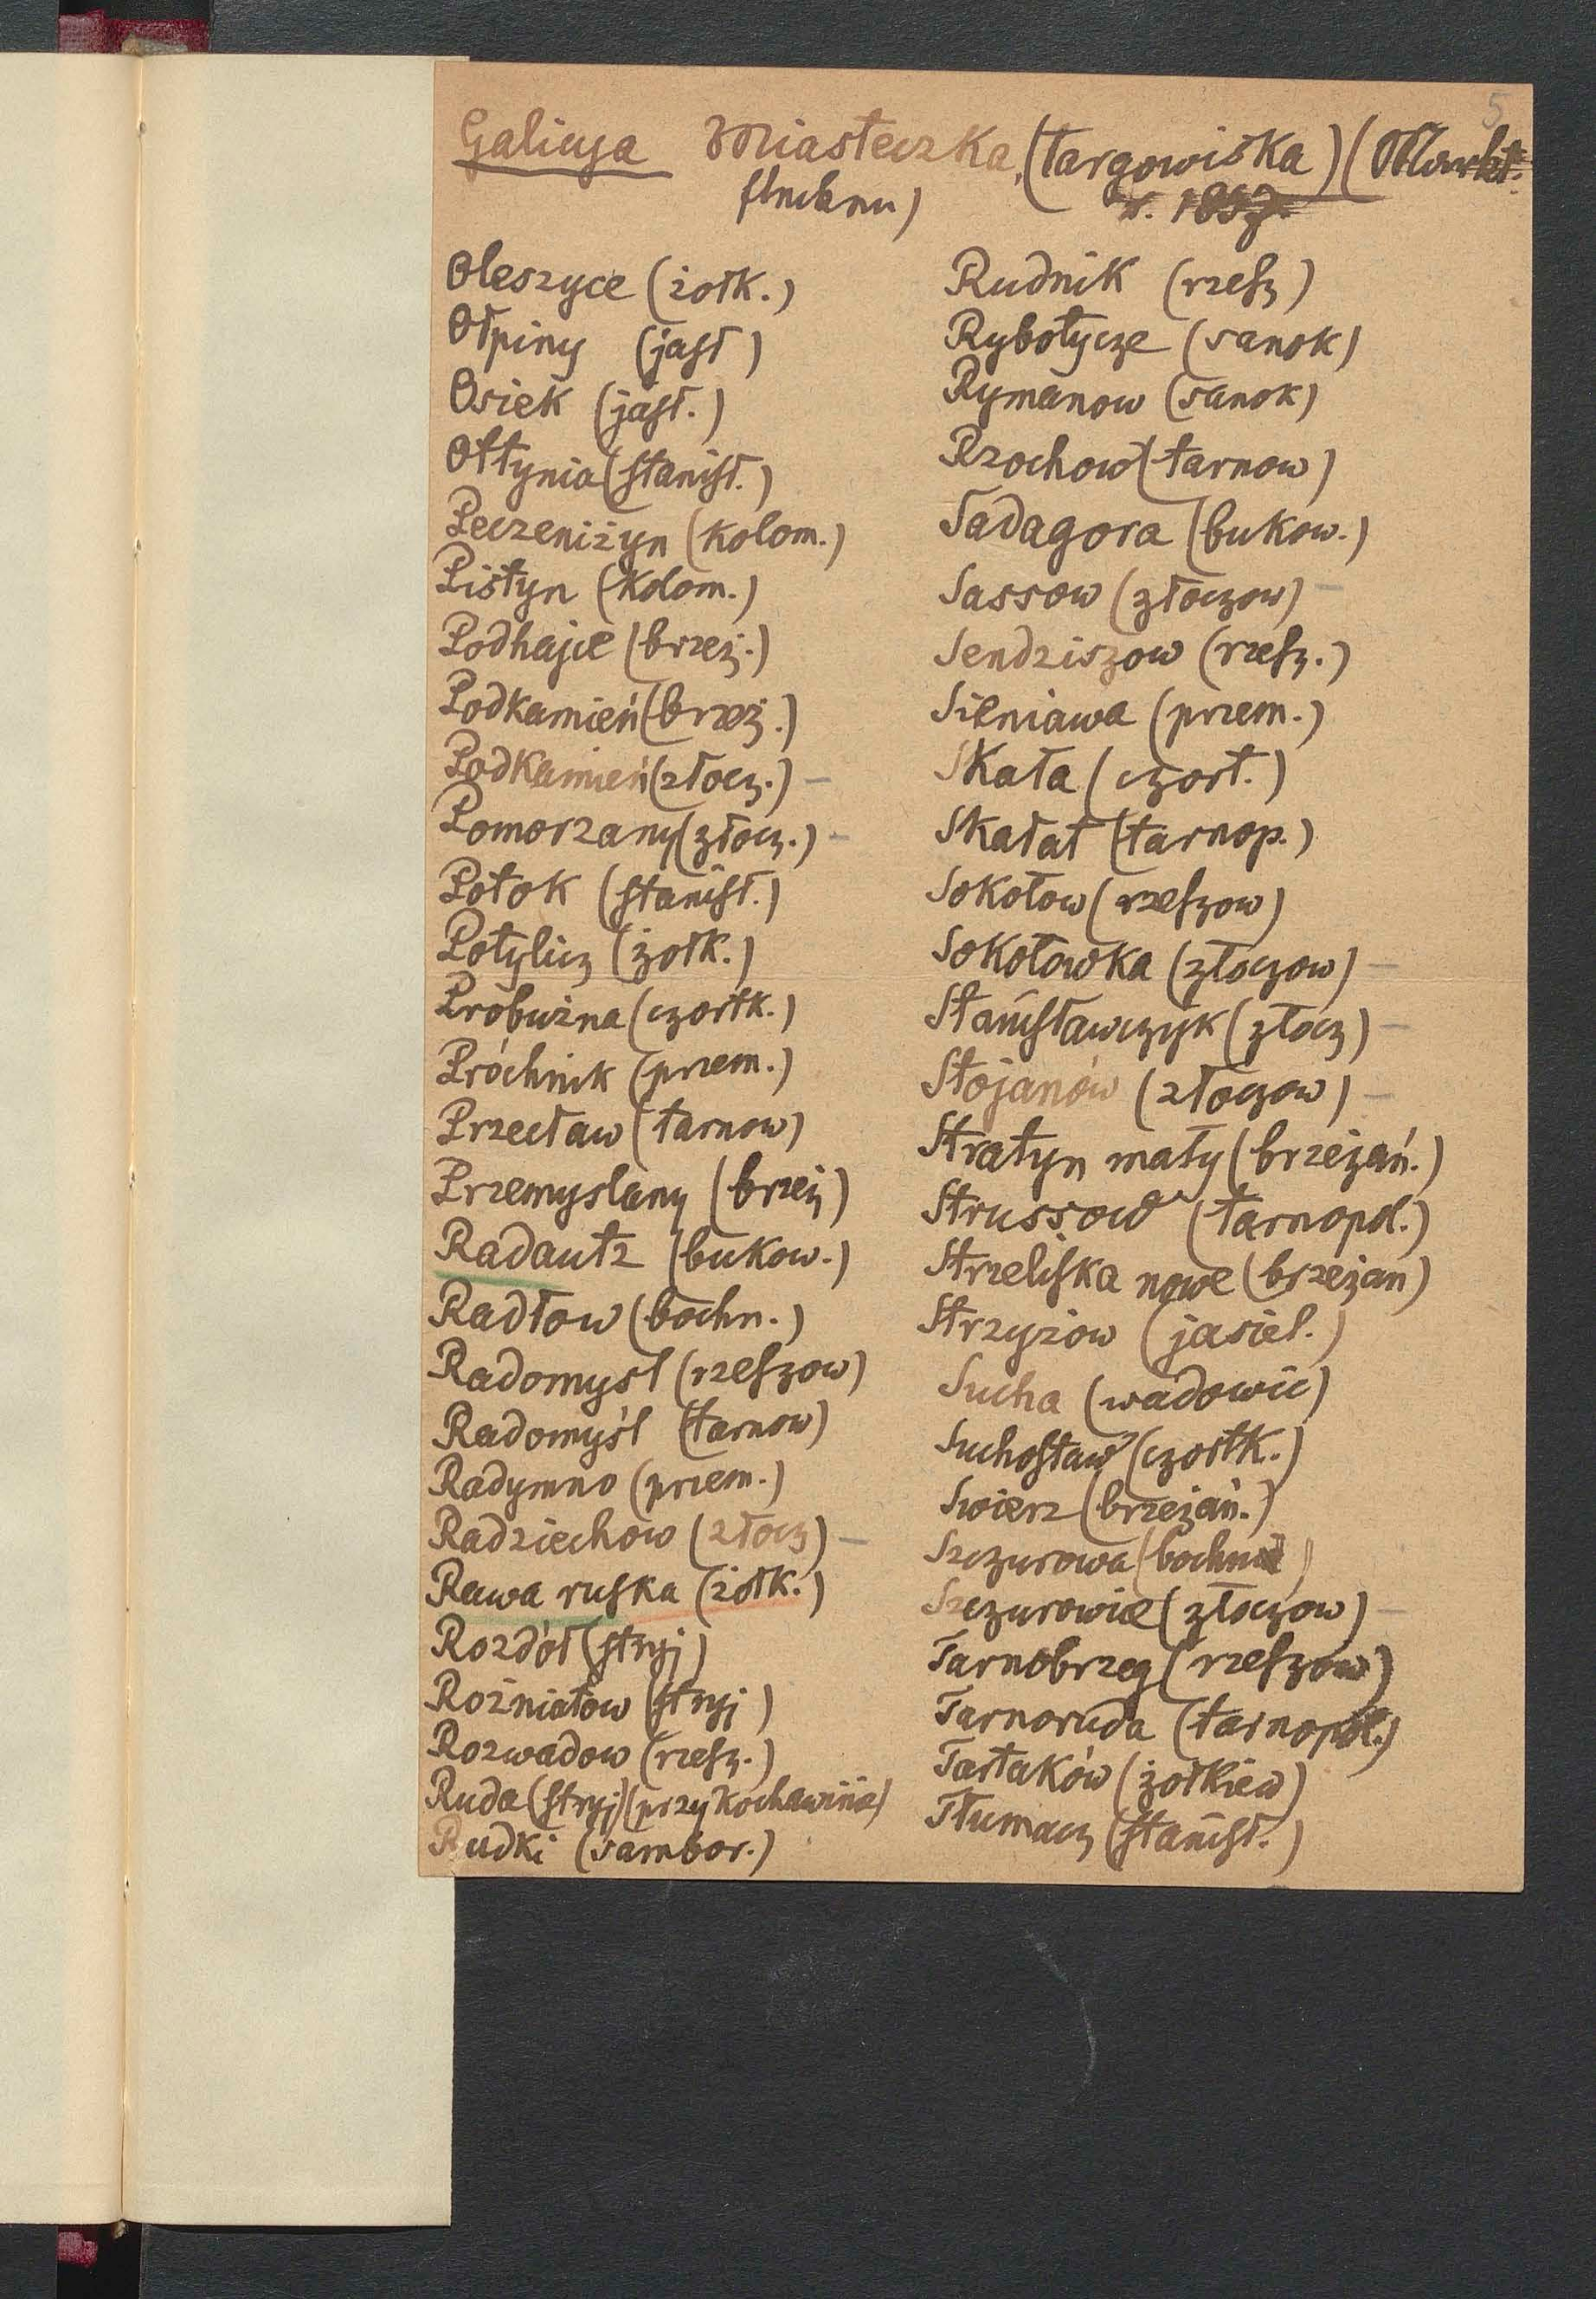 5
Galicya Miasteczka, (targowiska) (Markt-
flecken) r. 1857.
Oleszyce (żołk.)
Ołpiny (jasł)
Osiek (jasł.)
Ottynia (stanisł.)
Peczeniżyn (kolom.)
Pistyn (kolom.)
Podhajce (brzeż.)
Podkamień (brzeż.)
Podkamień (złocz.) –
Pomorzany (złocz.) –
Potok (stanisł.)
Potylicz (żołk.)
Probużna (czortk.)
Próchnik (przem.)
Przecław (tarnow)
Przemyslany (brzeż)
Radautz (bukow.)
Radłow (bochn.)
Radomysl (rzeszow)
Radomyśl (tarnow)
Radymno (przem.)
Radziechow (złocz) –
Rawa ruska (żołk.)
Rozdół (stryj)
Rożniatow (stryj)
Rozwadow (rzesz.)
Ruda (stryj) (przy Kochawinie)
Rudki (sambor.)
Rudnik (rzesz)
Rybotycze (sanok)
Rymanow (sanok)
Rzochow (tarnow)
Sadagora (bukow.)
Sassow (złoczow) –
Sendziszow (rzesz.)
Sieniawa (przem.)
Skała (czort.)
Skałat (tarnop.)
Sokołow (rzeszow)
Sokołowka (złoczow) –
Stanisławczyk (złocz) –
Stojanów (złoczow) –
Stratyn mały (brzeżań.)
Strussow (tarnopol.)
Strzeliska nowe (brzeżan)
Strzyżow (jasiel.)
Sucha (wadowic)
Suchostaw (czortk.)
Swierz (brzeżań.)
Szczurowa (bochn)
Szczurowice (złoczow) –
Tarnobrzeg (rzeszow)
Tarnoruda (tarnopol.)
Tartaków (żołkiew)
Tłumacz (stanisł.)